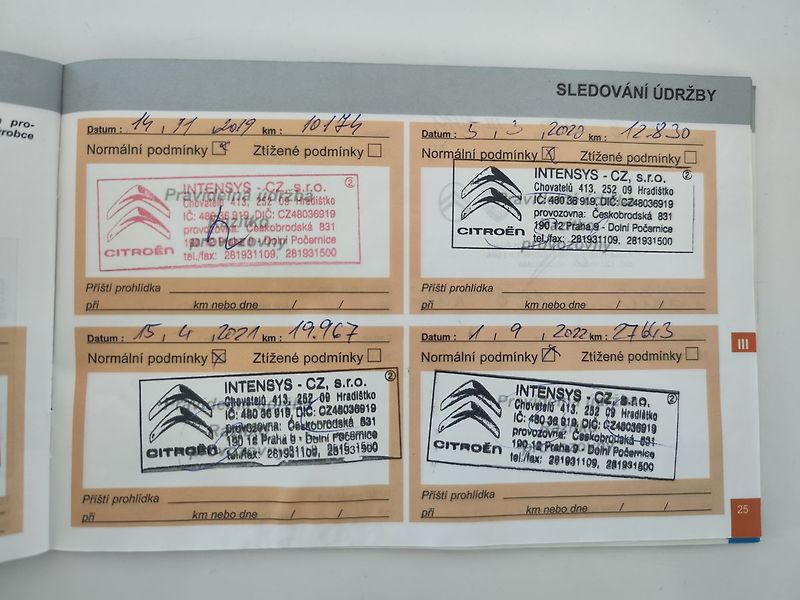 pro-
ýrobce
SLEDOVÁNÍ ÚDRŽBY
Datum : 14 , 11 , 2019 km : 10174
Normální podmínky Ztížené podmínky
Pravidelná údržba
INTENSYS - CZ, s.r.o. ②
Chovatelů 413, 252 09 Hradištko
IČ: 480 36 919, DIČ: CZ48036919
provozovna: Českobrodská 831
190 12 Praha 9 - Dolní Počernice
tel./fax: 281931109, 281931500
CITROËN
Razítko
provozovny
Příští prohlídka
při km nebo dne / /
Datum : 5 , 3 , 2020 km : 12830
Normální podmínky Ztížené podmínky
INTENSYS - CZ, s.r.o. ②
Chovatelů 413, 252 09 Hradištko
IČ: 480 36 919, DIČ: CZ48036919
provozovna: Českobrodská 831
190 12 Praha 9 - Dolní Počernice
tel./fax: 281931109, 281931500
CITROËN
provozovny
Příští prohlídka
při km nebo dne / /
Datum : 15 , 4 , 2021 km : 19.967
Normální podmínky Ztížené podmínky
INTENSYS - CZ, s.r.o. ②
Chovatelů 413, 252 09 Hradištko
IČ: 480 36 919, DIČ: CZ48036919
provozovna: Českobrodská 831
190 12 Praha 9 - Dolní Počernice
tel./fax: 281931109, 281931500
CITROËN
Příští prohlídka
při km nebo dne / /
Datum : 1 , 9 , 2022 km : 27643
Normální podmínky Ztížené podmínky
INTENSYS - CZ, s.r.o. ②
Chovatelů 413, 252 09 Hradištko
IČ: 480 36 919, DIČ: CZ48036919
provozovna: Českobrodská 831
190 12 Praha 9 - Dolní Počernice
tel./fax: 281931109, 281931500
CITROËN
Příští prohlídka
při km nebo dne / /
III
25